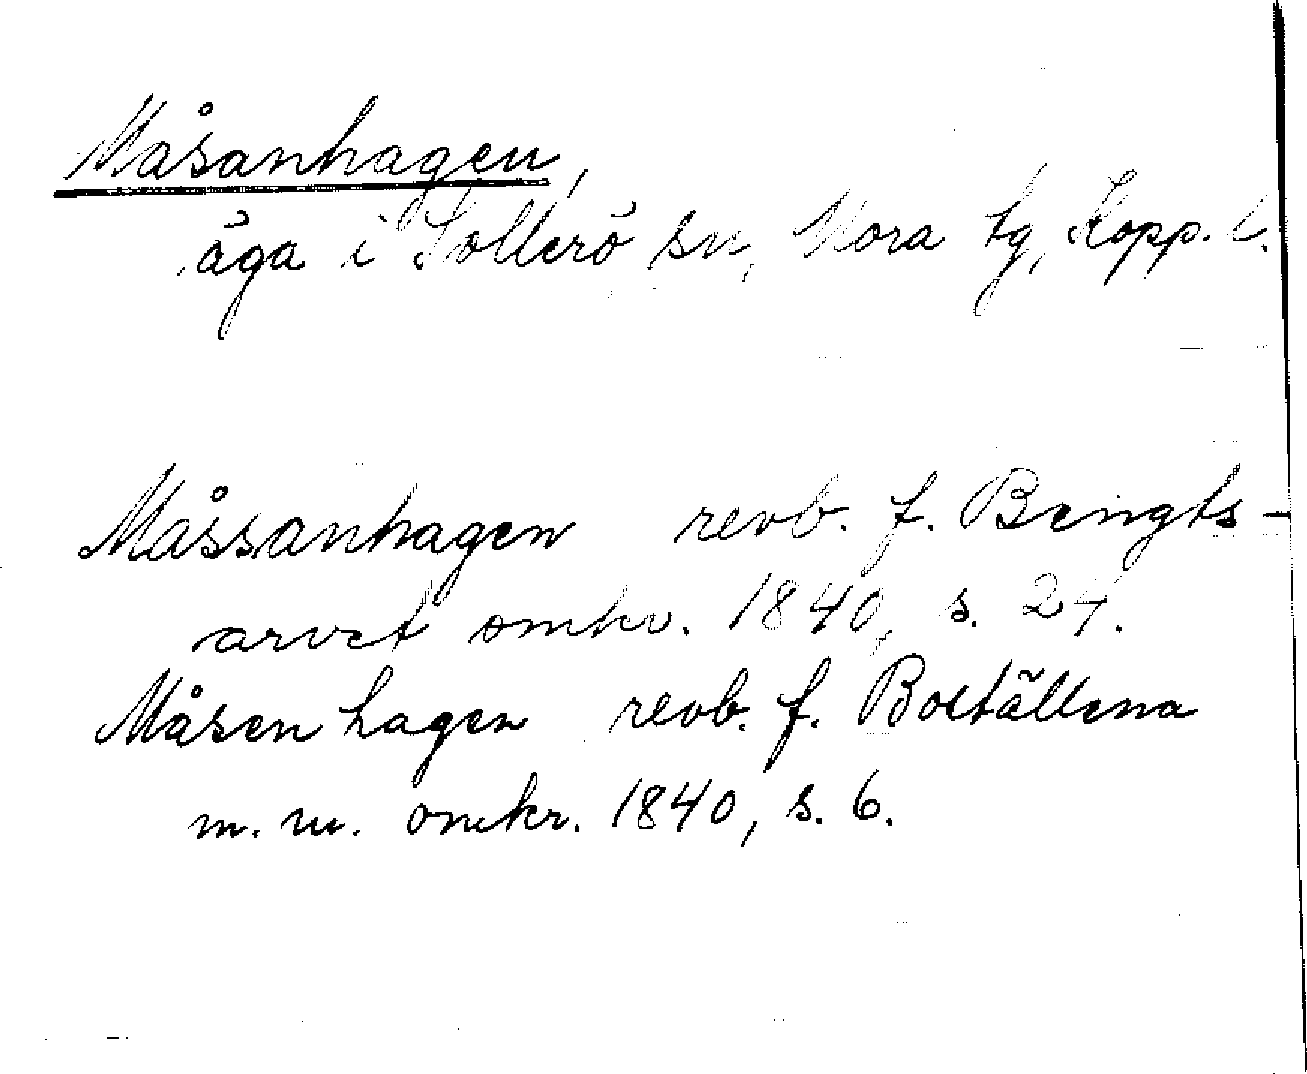 Måsanhagen,
äga i Sollerö sn, Mora tg, Kopp. l.
Måssanhagen revb. f. Bengts-
arvet omkr. 1840, s. 24.
Måsen hagen revb. f. Boltällena
m. m. omkr. 1840, s. 6.